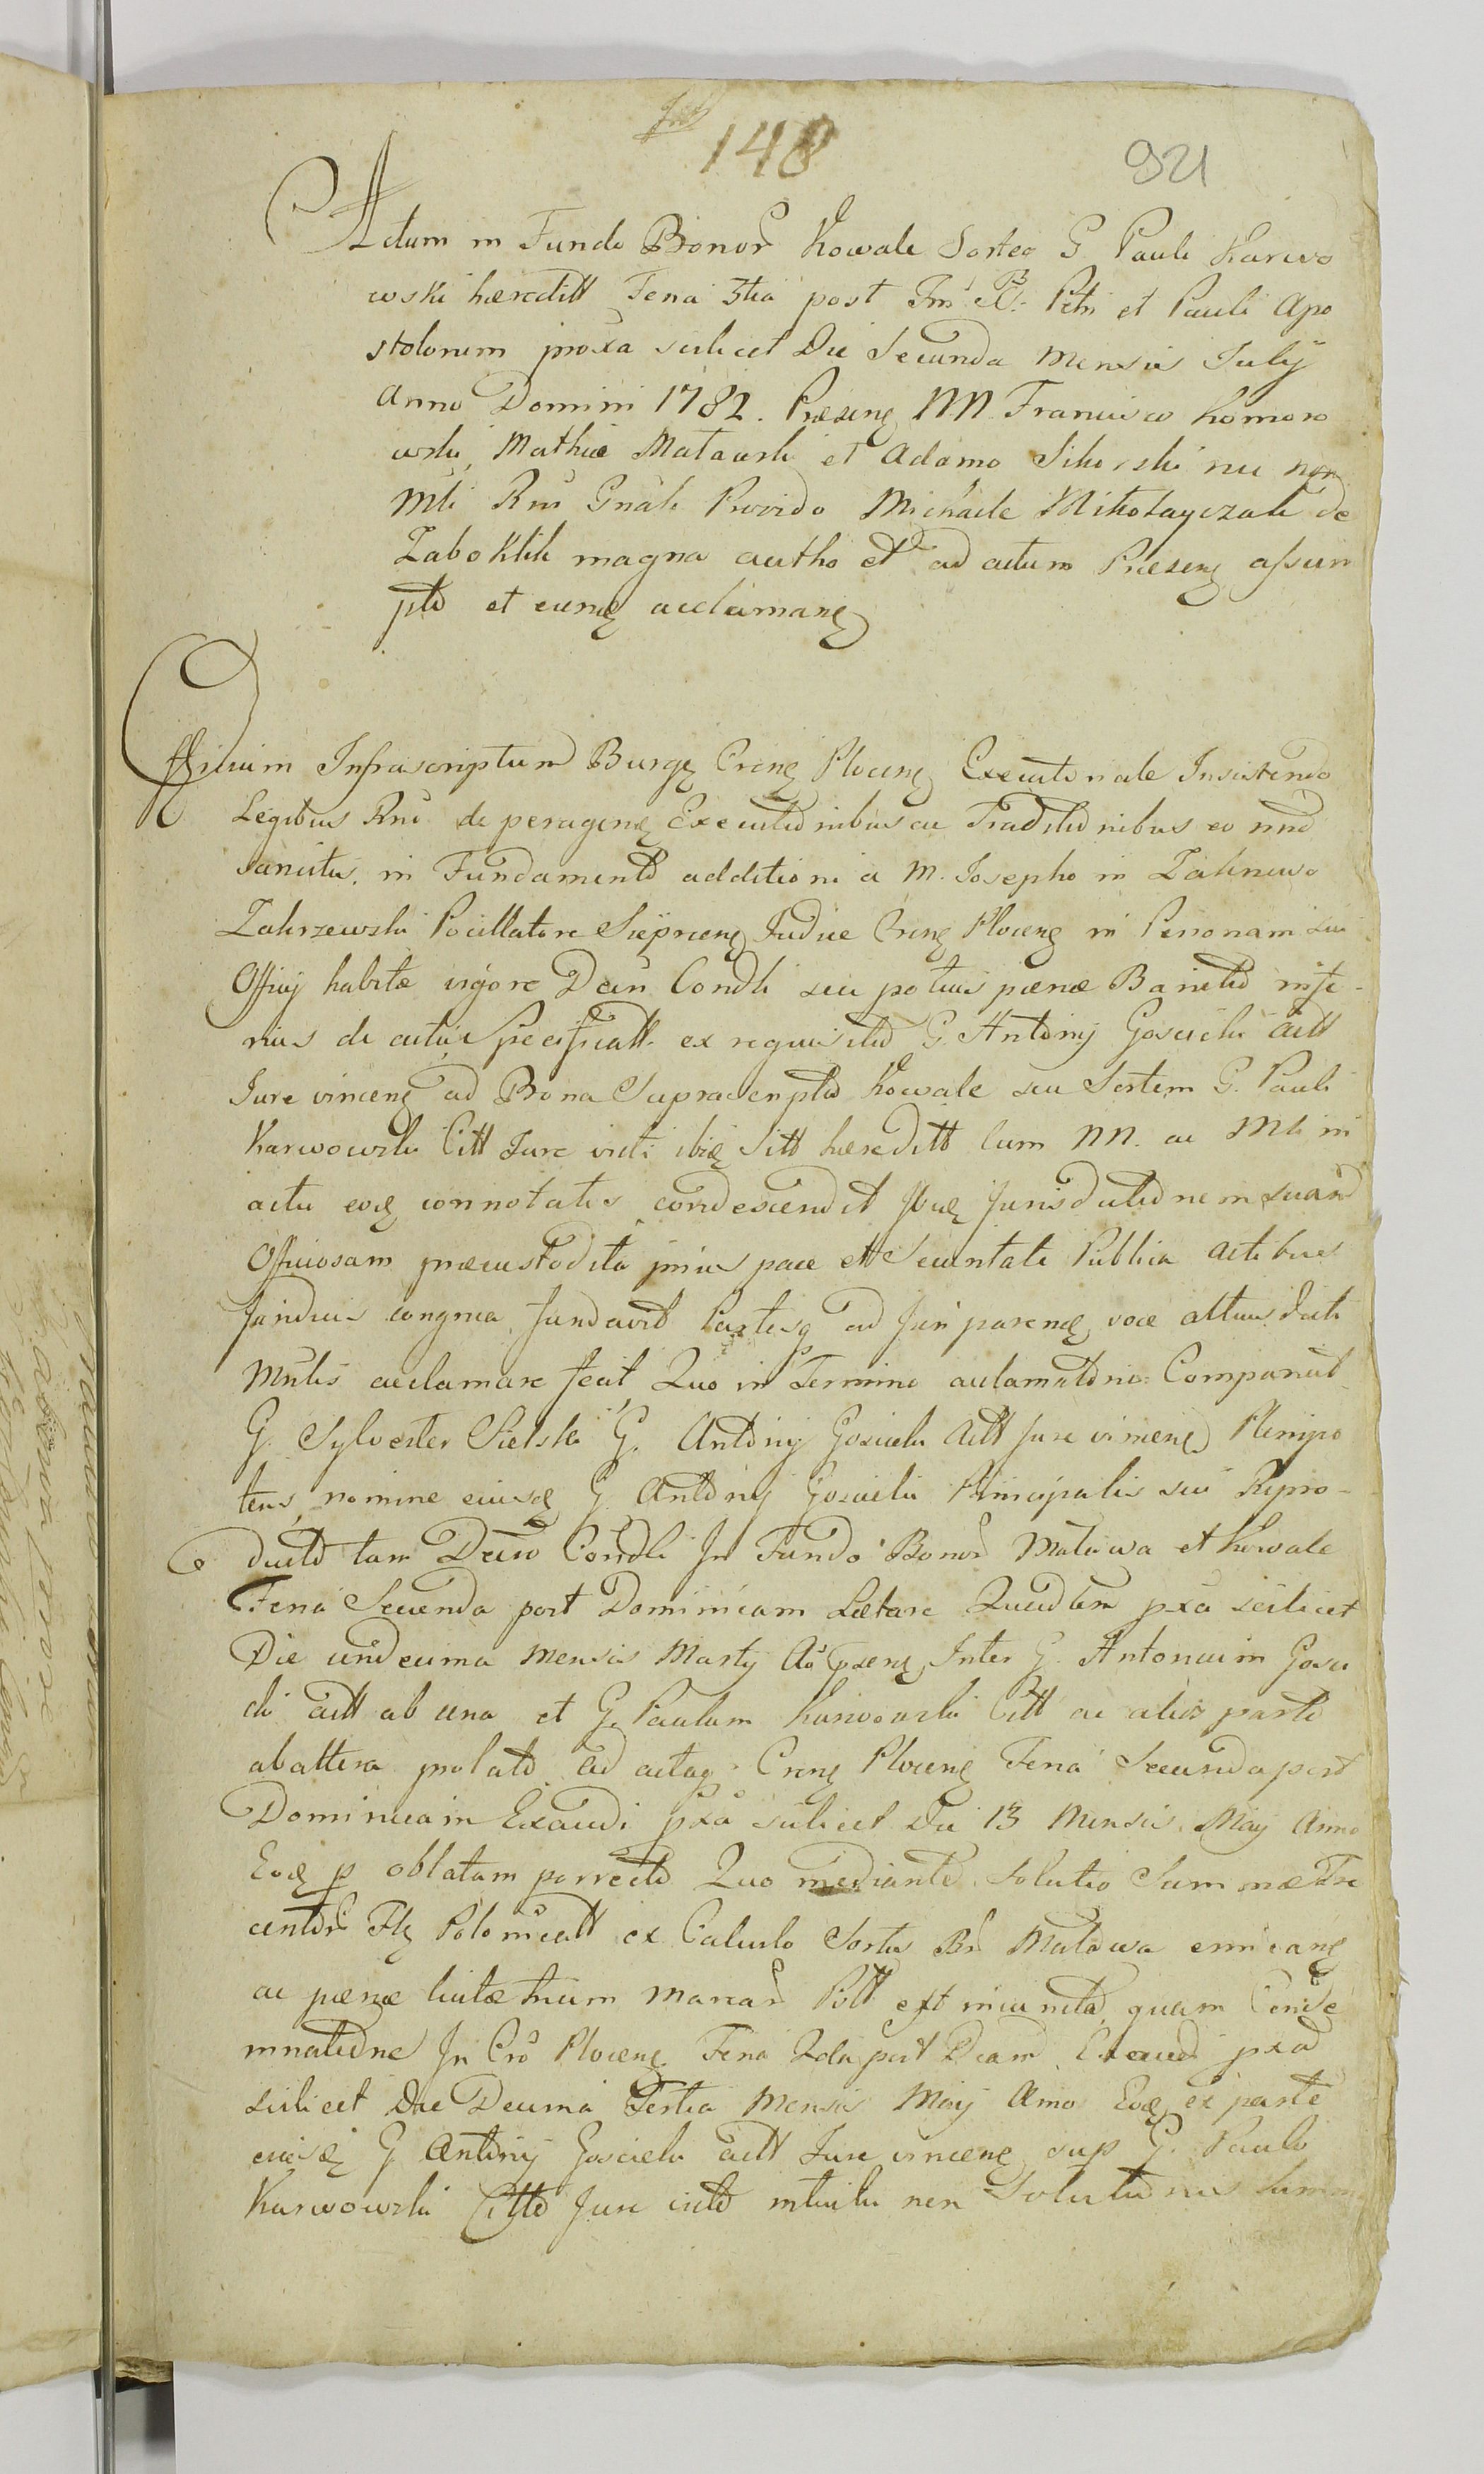 148
921
Actum in Fundo Bonor Kowale Sortis G Pauli Karwo
wski hæreditt Feria 3tia post Fm SS. Petri et Pauli Apo
stolorum proxa scilicet Die Secunda Mensis July
Anno Domini 1782. Præsens NN. Francisco Komoro
wski, Mathia Matawski et Adamo Sikorski nec non
Mli Rni Gnali Provido Michaele Mikołayczak de
Zabokliki magna autho et ad actum Præsens assum
pto et eumq acclamans
Officium Infrascriptum Burgg Crens Plocens Executoriale Insistendo
Legibus Rni de peragens Executionibus ac Traditionibus eo nne
sancitis, in Fundamento additioni a M. Josepho in Zakrzewo
Zakrzewski Pocillatore Sieprcens Judice Crens Plocens in Personam sui
Officij habitæ vigore Decri Condli seu potius pænæ Banitio infe-
rius de actu Specificatt ex requisitio G. Antonij Goscicki Actt
Jure vincens ad Bona Suprascripta Kowale seu Sortem G. Pauli
Karwowski Citt Jure victi ibiq sitt hæreditt cum NN. ac Mli in
actu eoq connotatis condescendit Ibiq Jurisdictionem suam
Officiosam præcustodita prius pace et Securitate Publica actibus
Juridicis congrua fundavit Partesq ad Juri parens voce altius dicti
Mnlis acclamare fecit Quo in Termino acclamationis Comparuit
G. Sylvester Sielski G. Antonij Goscicki Actt Jure vincens Plenipo
tens, nomine eiusq G. Antonij Goscicki Principalis sui Repro-
ducto tam Decro Condli In Fundo Bonor Matawa et Kowale
Feria Secunda post Dominicam Lætare Quadlem pxa scilicet
Die undecima Mensis Marty Ao præsens Inter G. Antonium Gosci
cki Actt ab una et G. Paulum Karwowski Citt ac alios parte
ab altera prolato Ad actaq Crens Plocens Feria Secunda post
Dominicam Exaudi pxa scilicet Die 13 Mensis May Anno
Eoq p oblatam porrecto Quo mediante solutio Summæ Tre
centor Flq Polonicatt ex Calculo Sortis Br Matawa emicans
ac pænæ lucitæ trium Marcar Poll est iniuncta, quam Conde
mnatione In Cro Plocens Feria 2da post Dcam Exaudi pxa
scilicet Die Decima Tertia Mensis May Anno Eoq ex parte
eiusq G Antonij Goscicki Actt Jure vincens sup G. Paulo
Karwowski Citto Jure victo intuitu non Solutionis Summ